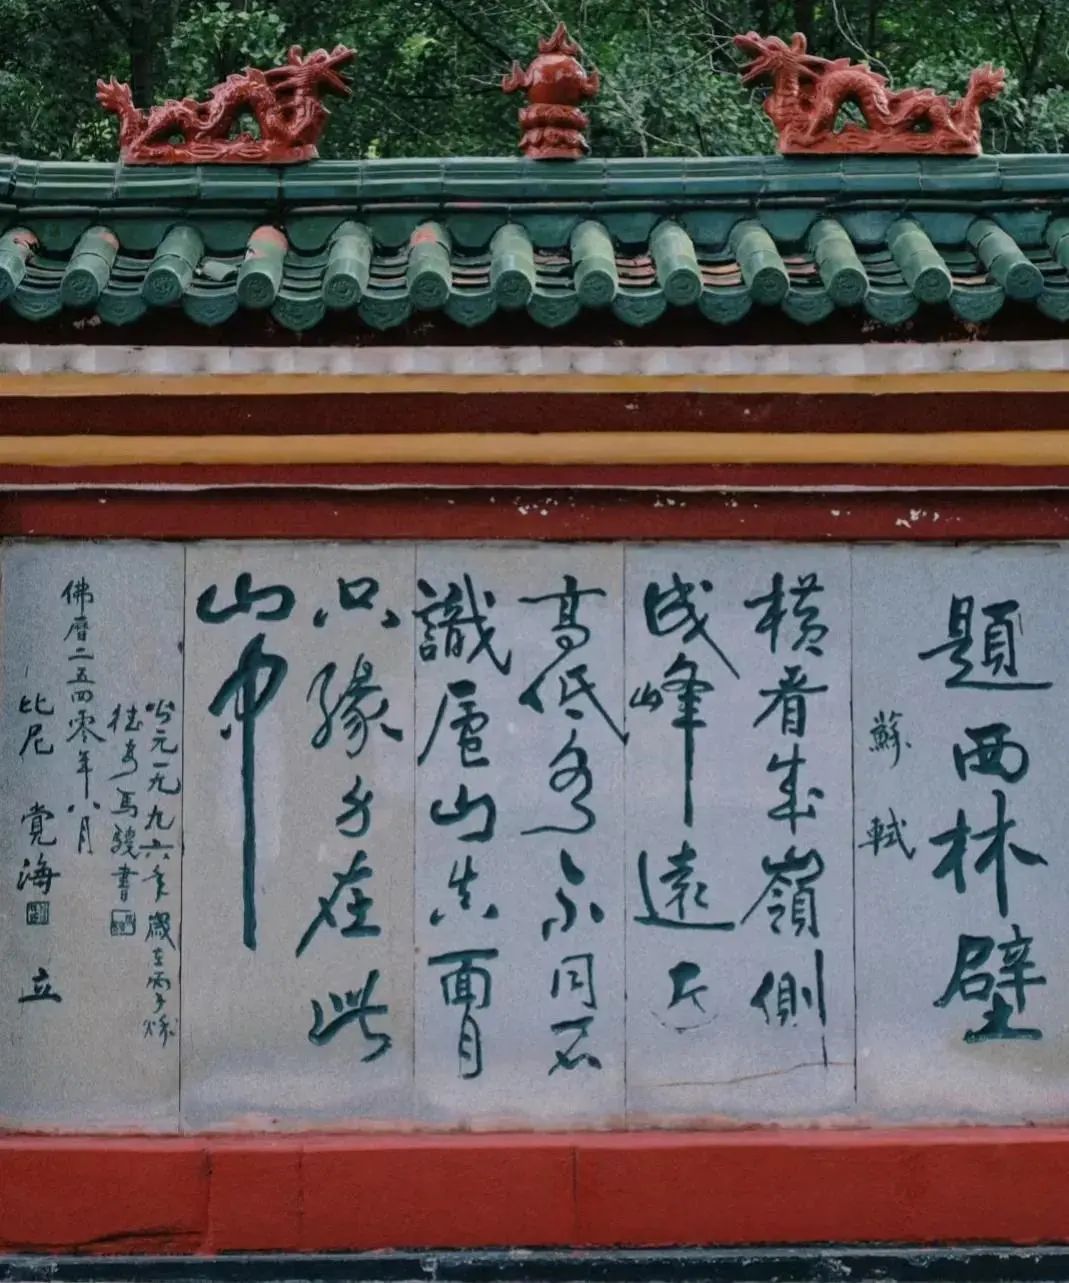 題西林壁
蘇軾
橫看成嶺側
成峰遠近
高低各不同不
識廬山真面目
只緣身在此
山中
公元一九九六年歲在丙子秋
馬駿書
佛曆二五四零年八月
比尼 覺海 立